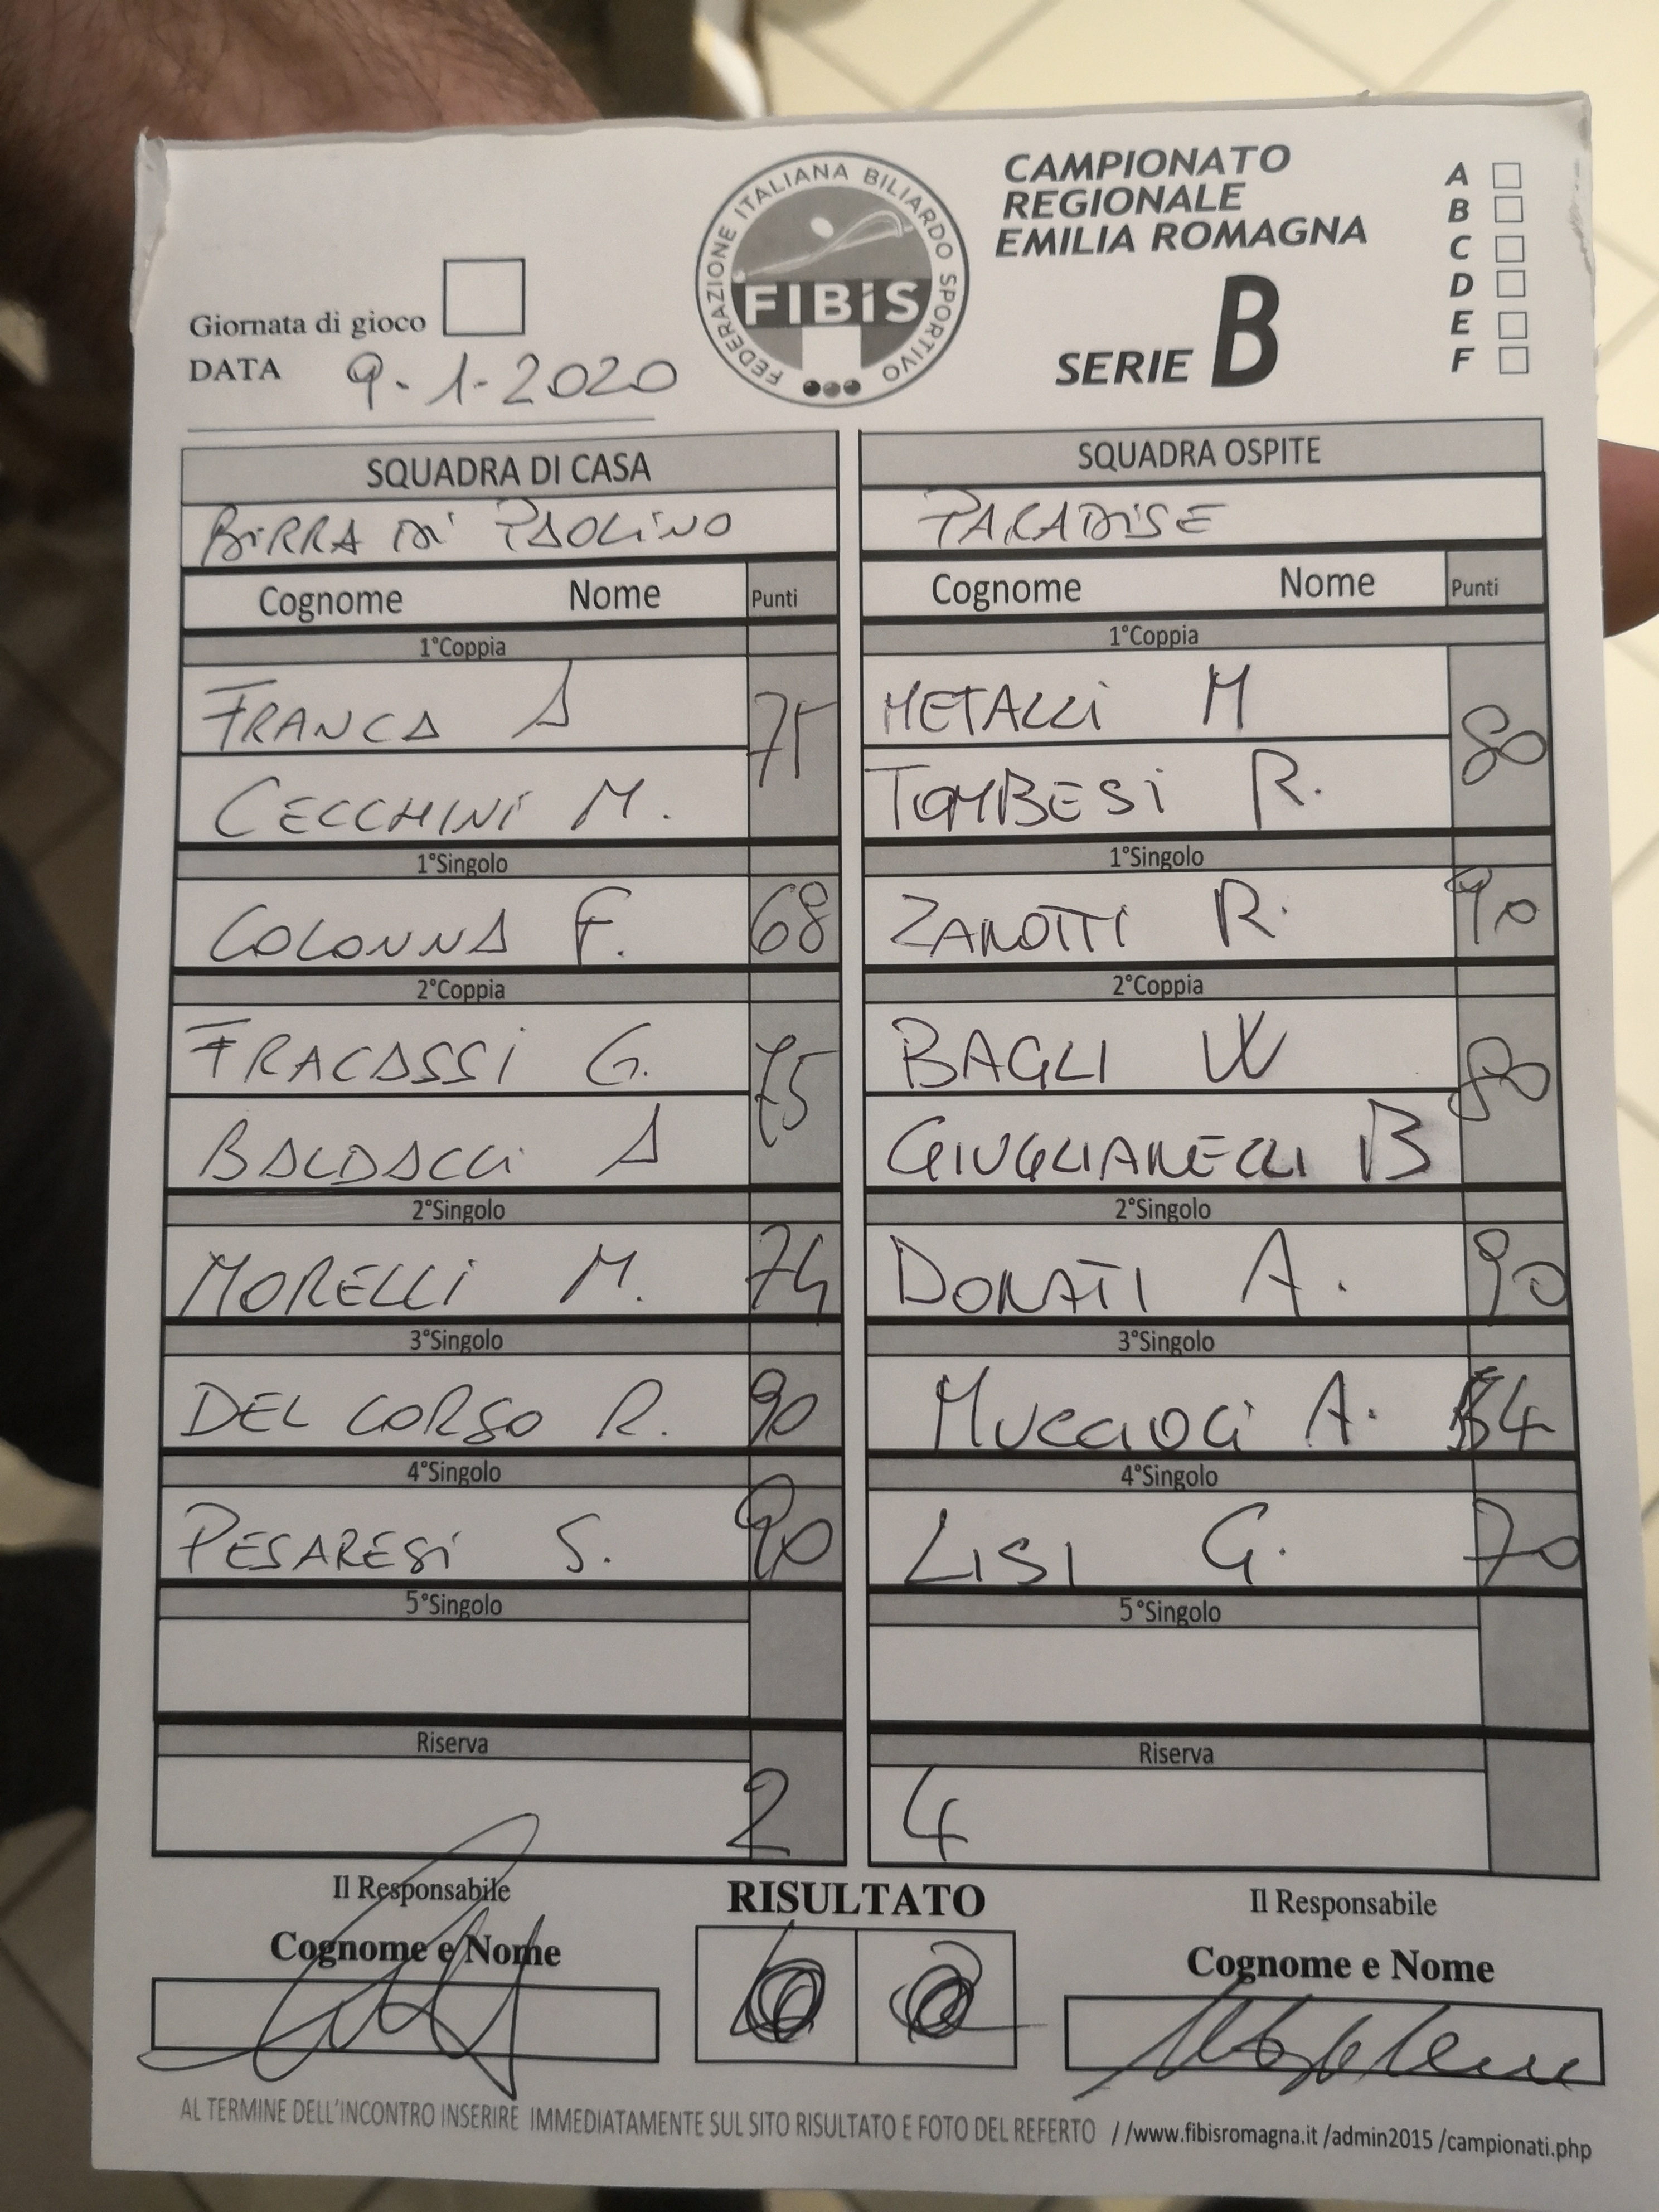 FEDERAZIONE ITALIANA BILIARDO SPORTIVO
FIBiS
CAMPIONATO
REGIONALE
EMILIA ROMAGNA
SERIE B
A
B
C
D
E
F
Giornata di gioco
DATA 9-1-2020
SQUADRA DI CASA
BiRRA Di PAOLiNO
Cognome Nome Punti
1°Coppia
FRANCA A 75
CECCHiNi M.
1°Singolo
COLONNA F. 68
2°Coppia
FRACASSi G. 75
BALDACCi A
2°Singolo
MORELLi M. 74
3°Singolo
DEL CORSO R. 90
4°Singolo
PESARESi S. 90
5°Singolo
Riserva
2
SQUADRA OSPITE
PARADiSE
Cognome Nome Punti
1°Coppia
METALLi M 80
TOMBESi R.
1°Singolo
ZANOTTI R. 90
2°Coppia
BAGLI W 80
GIUGLIANELLI B
2°Singolo
DONATI A. 90
3°Singolo
MUCCIOLI A. 54
4°Singolo
LISI G. 70
5°Singolo
Riserva
4
Il Responsabile
Cognome e Nome
RISULTATO
Il Responsabile
Cognome e Nome
AL TERMINE DELL'INCONTRO INSERIRE IMMEDIATAMENTE SUL SITO RISULTATO E FOTO DEL REFERTO //www.fibisromagna.it /admin2015 /campionati.php